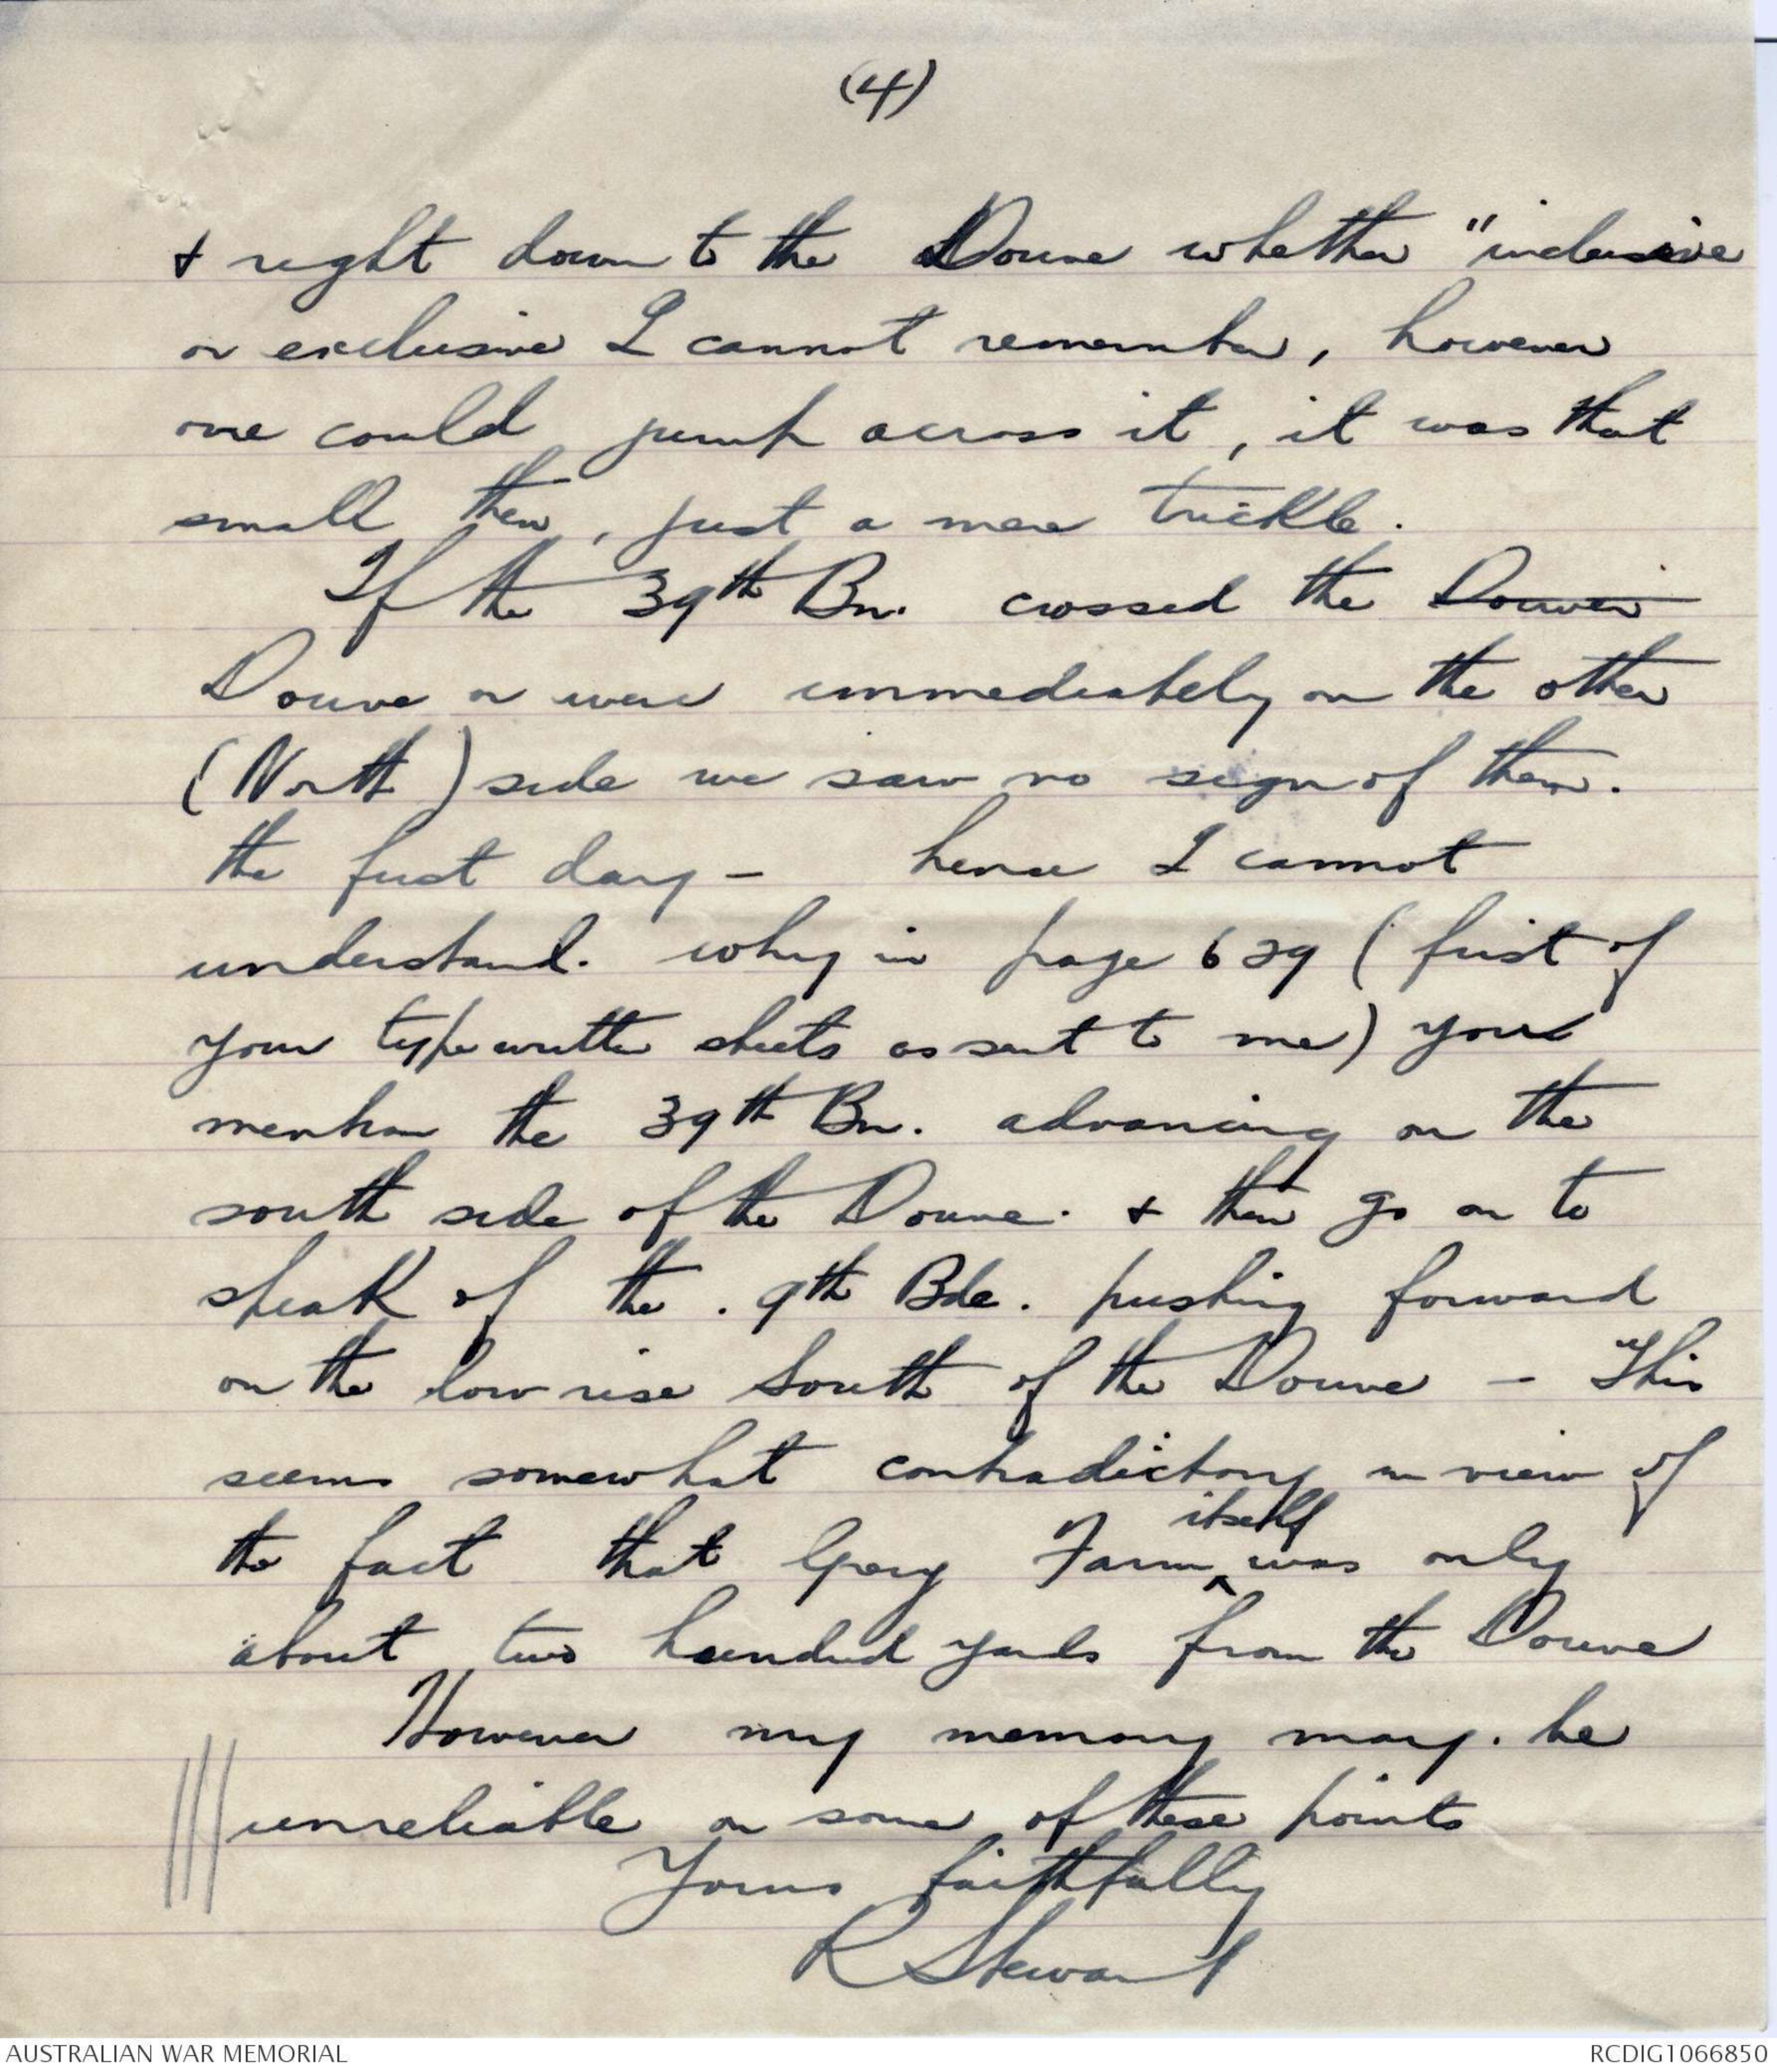 (4)
& right down to the Douve whether "inclusive
or exclusive I cannot remember, however
one could jump across it, it was that
small then, just a mere trickle.
If the 39th Bn. crossed the
Douve or were immediately on the other
(North) side we saw no sign of them.
the first day - hence I cannot
understand. why in page 639 (first of
your typewritten sheets as sent to me) you
mention the 39th Bn. advancing on the
south side of the Douve. & then go on to
speak of the. 9th Bde. pushing forward
on the low rise South of the Douve - This
seems somewhat contradictory in view of
itself
the fact that Grey Farm ^ was only
about two hundred yards from the Douve
However my memory may. be
unreliable on some of these points
Yours faithfully
R Stewart
AUSTRALIAN WAR MEMORIAL
RCDIG1066850